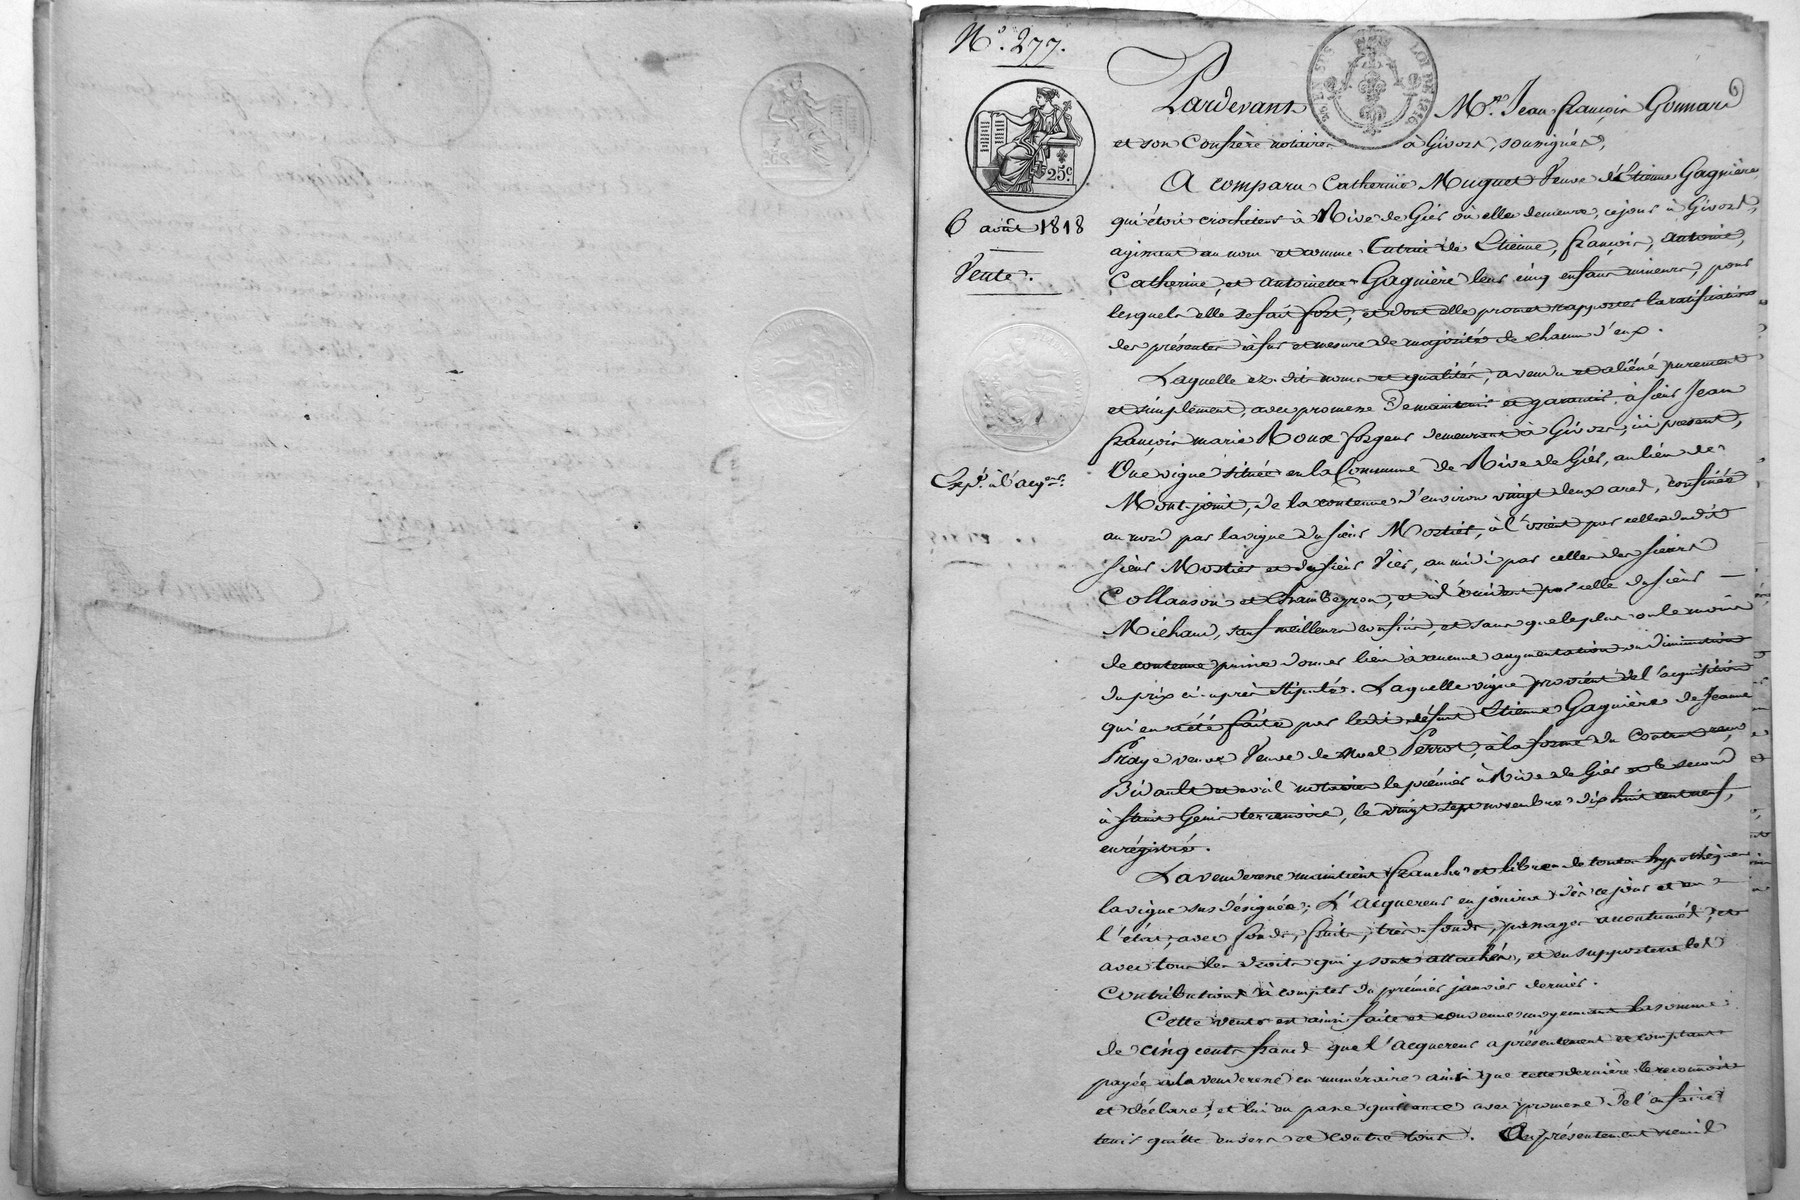 N.° 277.
TIMB. SPS LOI DE 1816.
25.c
6 août 1818
Vente.
Exp.é à l'acq.eur.
Pardevant M.e Jean françois Gonnard
et son Confrère notaires à Givors, soussignés,
A comparu Catherine Muguet Veuve d'Etienne Gagnière
qui étoit crocheteur à Rive de Giès où elle demeure, ce jour à Givors,
agissant au nom et comme tutrice de Etienne, françois, antoine,
Catherine, et antoinette Gagnière leurs cinq enfans mineurs, pour
lesquels elle se fait fort, et dont elle promet rapporter la ratification
des présentes à fur et mesure de majorité de chacun d'eux.
Laquelle ez dits noms et qualités, a vendu et aliéné purement
et simplement, avec promesse de maintenir et garantir, à sieur Jean
françois marie Roux forgeur demeurant à Givors, ici présent,
Une vigne située en la Commune de Rive de Giès, au lieu de
Mont-joint, de la contenue d'environ vingt deux ares, confinée
au nord par la vigne du sieur Mortier, à l'orient par celle dudit
sieur Mortier et du sieur Viér, au midi par celle des sieurs
Collanson et Chambeyron, et à l'occident par celle du sieur
Michaud, sauf meilleurs confins, et sans que le plus ou le moins
de contenue puisse donner lieu à aucune augmentation ou diminution
du prix ci-après stipulé. Laquelle vigne provient de l'acquisition
qui en a été faite par ledit défunt Etienne Gagnière de Jeanne
Praye veuve de Noel Perrot, à la forme du Contrat reçu
Bivault et notaires le premier à Rive de Giès et le second
à Saint Genis terrenoire, le vingt sept novembre dix huit cent neuf,
enrégistré.
La venderesse maintient franche et libre de toutes hypothèques
la vigne sus désignée; L'acquereur en jouira dès ce jour et en
l'état, avec fonds, fruits, très-fonds, passages accoutumés, et
avec tous les droits qui y sont attachés, et en supportera les
Contributions à compter du prémier janvier dernier.
Cette vente est ainsi faite et convenue moyennant la somme
de cinq cents francs que l'acquereur a présentement et comptant
payée à la venderesse en numéraire ainsi que cette dernière le reconnoit
et déclare, et lui en passe quittance avec promesse de l'en faire
tenir quitte envers et contre tous. Au présentement